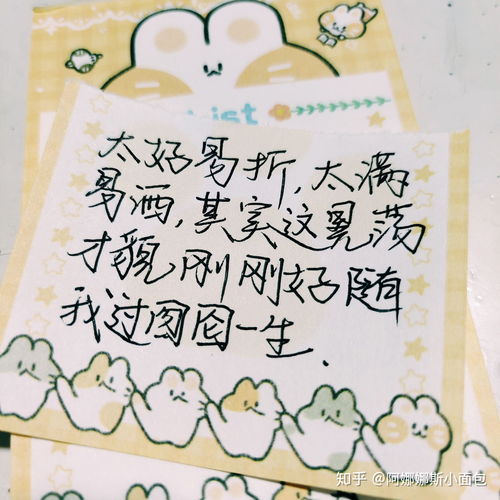 ist
太好易折,太满
易洒,其实这晃荡
才貌,刚刚好随
我过囫囵一生.
知乎 @阿娜娜斯小面包